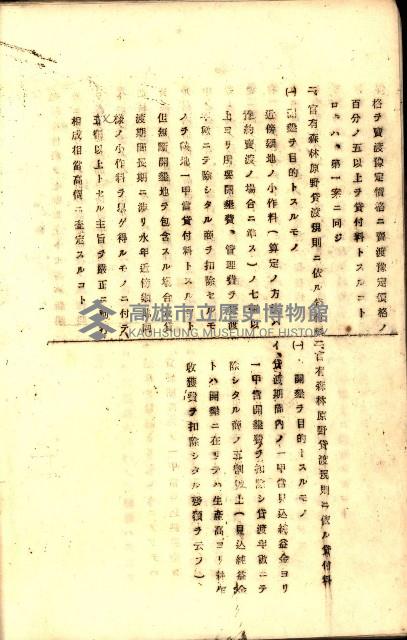 格ヲ賣渡豫定價格ニ賣渡豫定價格ノ
百分ノ五以上ヲ貸付料トスルコト
ロ、ハ、第一案ニ同ジ
二、官有森林原野貸渡規則ニ依ル
㈠ 開墾ヲ目的トスルモノ
近傍類地ノ小作料(算定ノ方
豫約賣渡ノ場合ニ準ス)ノ七
上ヨリ所要開墾費、管理費ヲ
年數ニテ除シタル商ヲ扣除セルモ
ノヲ該地一甲當貸付料トスルコト
但シ
渡期間長期ニ涉リ永年近傍類地同
様ノ小作料ヲ擧ゲ得ルモノニ付テハ
五割以上トセル主旨ヲ嚴正ニ
相成相當高價ニ査定スルコト
二、官有森林原野貸渡規則ニ依ル貸付料
㈠、開墾ヲ目的トスルモノ
イ、貸渡期間內ノ一甲當見込純益金ヨリ
一甲當開墾費ヲ扣除シ貸渡年數ニテ
除シタル商ノ五割以上(見込純益金
トハ開墾ニ在リテハ生產高ヨリ
收穫費ヲ扣除シタル殘額ヲ云フ)
高雄市立歷史博物館
KAOHSIUNG MUSEUM OF HISTORY